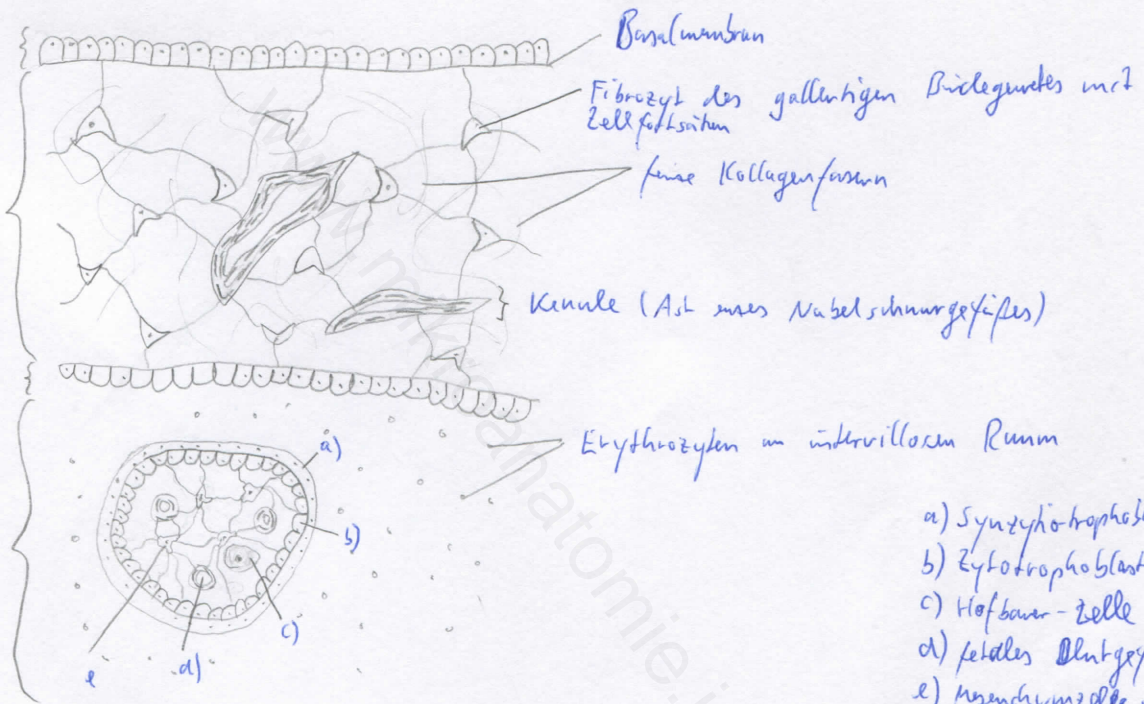 Basalmembran
Fibrozyt des gallertigen Bindegewebes mit
Zellfortsätzen
feine Kollagenfasern
Kanüle (Ast eines Nabelschnurgefäßes)
Erythrozyten im intervillösen Raum
a)
b)
c)
d)
e
a) Synzytiotrophobl
b) Zytotrophoblast
c) Hofbauer-Zelle
d) fetales Blutgef
e) Mesenchymzelle
www.mikroanatomie.